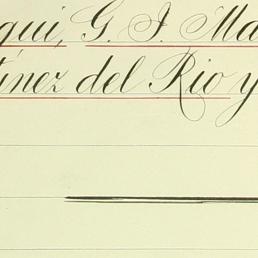 qui, G. I. Ma
tínez del Rio y